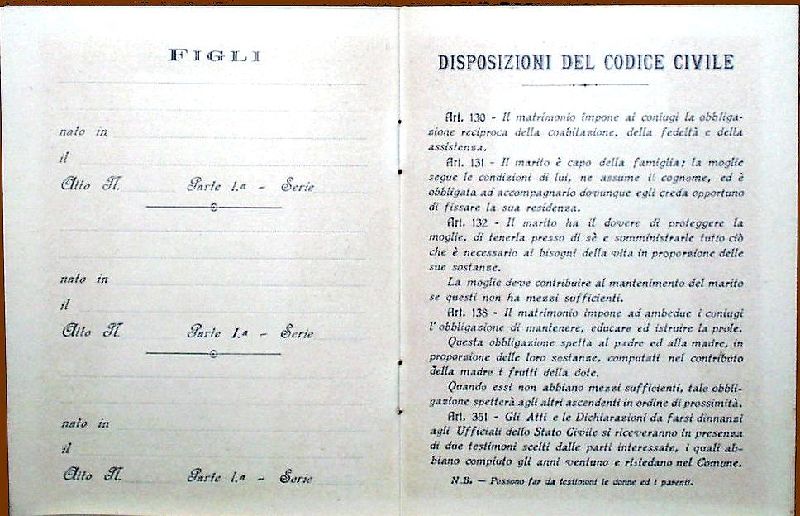 FIGLI
nato in
il
Atto N. Parte 1.ª - Serie
nato in
il
Atto N. Parte 1.ª - Serie
nato in
il
Atto N. Parte 1.ª - Serie
DISPOSIZIONI DEL CODICE CIVILE
Art. 130 - Il matrimonio impone ai coniugi la obbliga-
zione reciproca della coabitazione, della fedeltà e della
assistenza.
Art. 131 - Il marito è capo della famiglia; la moglie
segue le condizioni di lui, ne assume il cognome, ed è
obbligata ad accompagnarlo dovunque egli creda opportuno
di fissare la sua residenza.
Art. 132 - Il marito ha il dovere di proteggere la
moglie, di tenerla presso di sè e somministrarle tutto ciò
che è necessario ai bisogni della vita in proporzione delle
sue sostanze.
La moglie deve contribuire al mantenimento del marito
se questi non ha mezzi sufficienti.
Art. 138 - Il matrimonio impone ad ambedue i coniugi
l'obbligazione di mantenere, educare ed istruire la prole.
Questa obbligazione spetta al padre ed alla madre, in
proporzione delle loro sostanze, computati nel contributo
della madre i frutti della dote.
Quando essi non abbiano mezzi sufficienti, tale obbli-
gazione spetterà agli altri ascendenti in ordine di prossimità.
Art. 351 - Gli Atti e le Dichiarazioni da farsi dinnanzi
agli Ufficiali dello Stato Civile si riceveranno in presenza
di due testimoni scelti dalle parti interessate, i quali ab-
biano compiuto gli anni ventuno e risiedano nel Comune.
N.B. — Possono far da testimoni le donne ed i parenti.